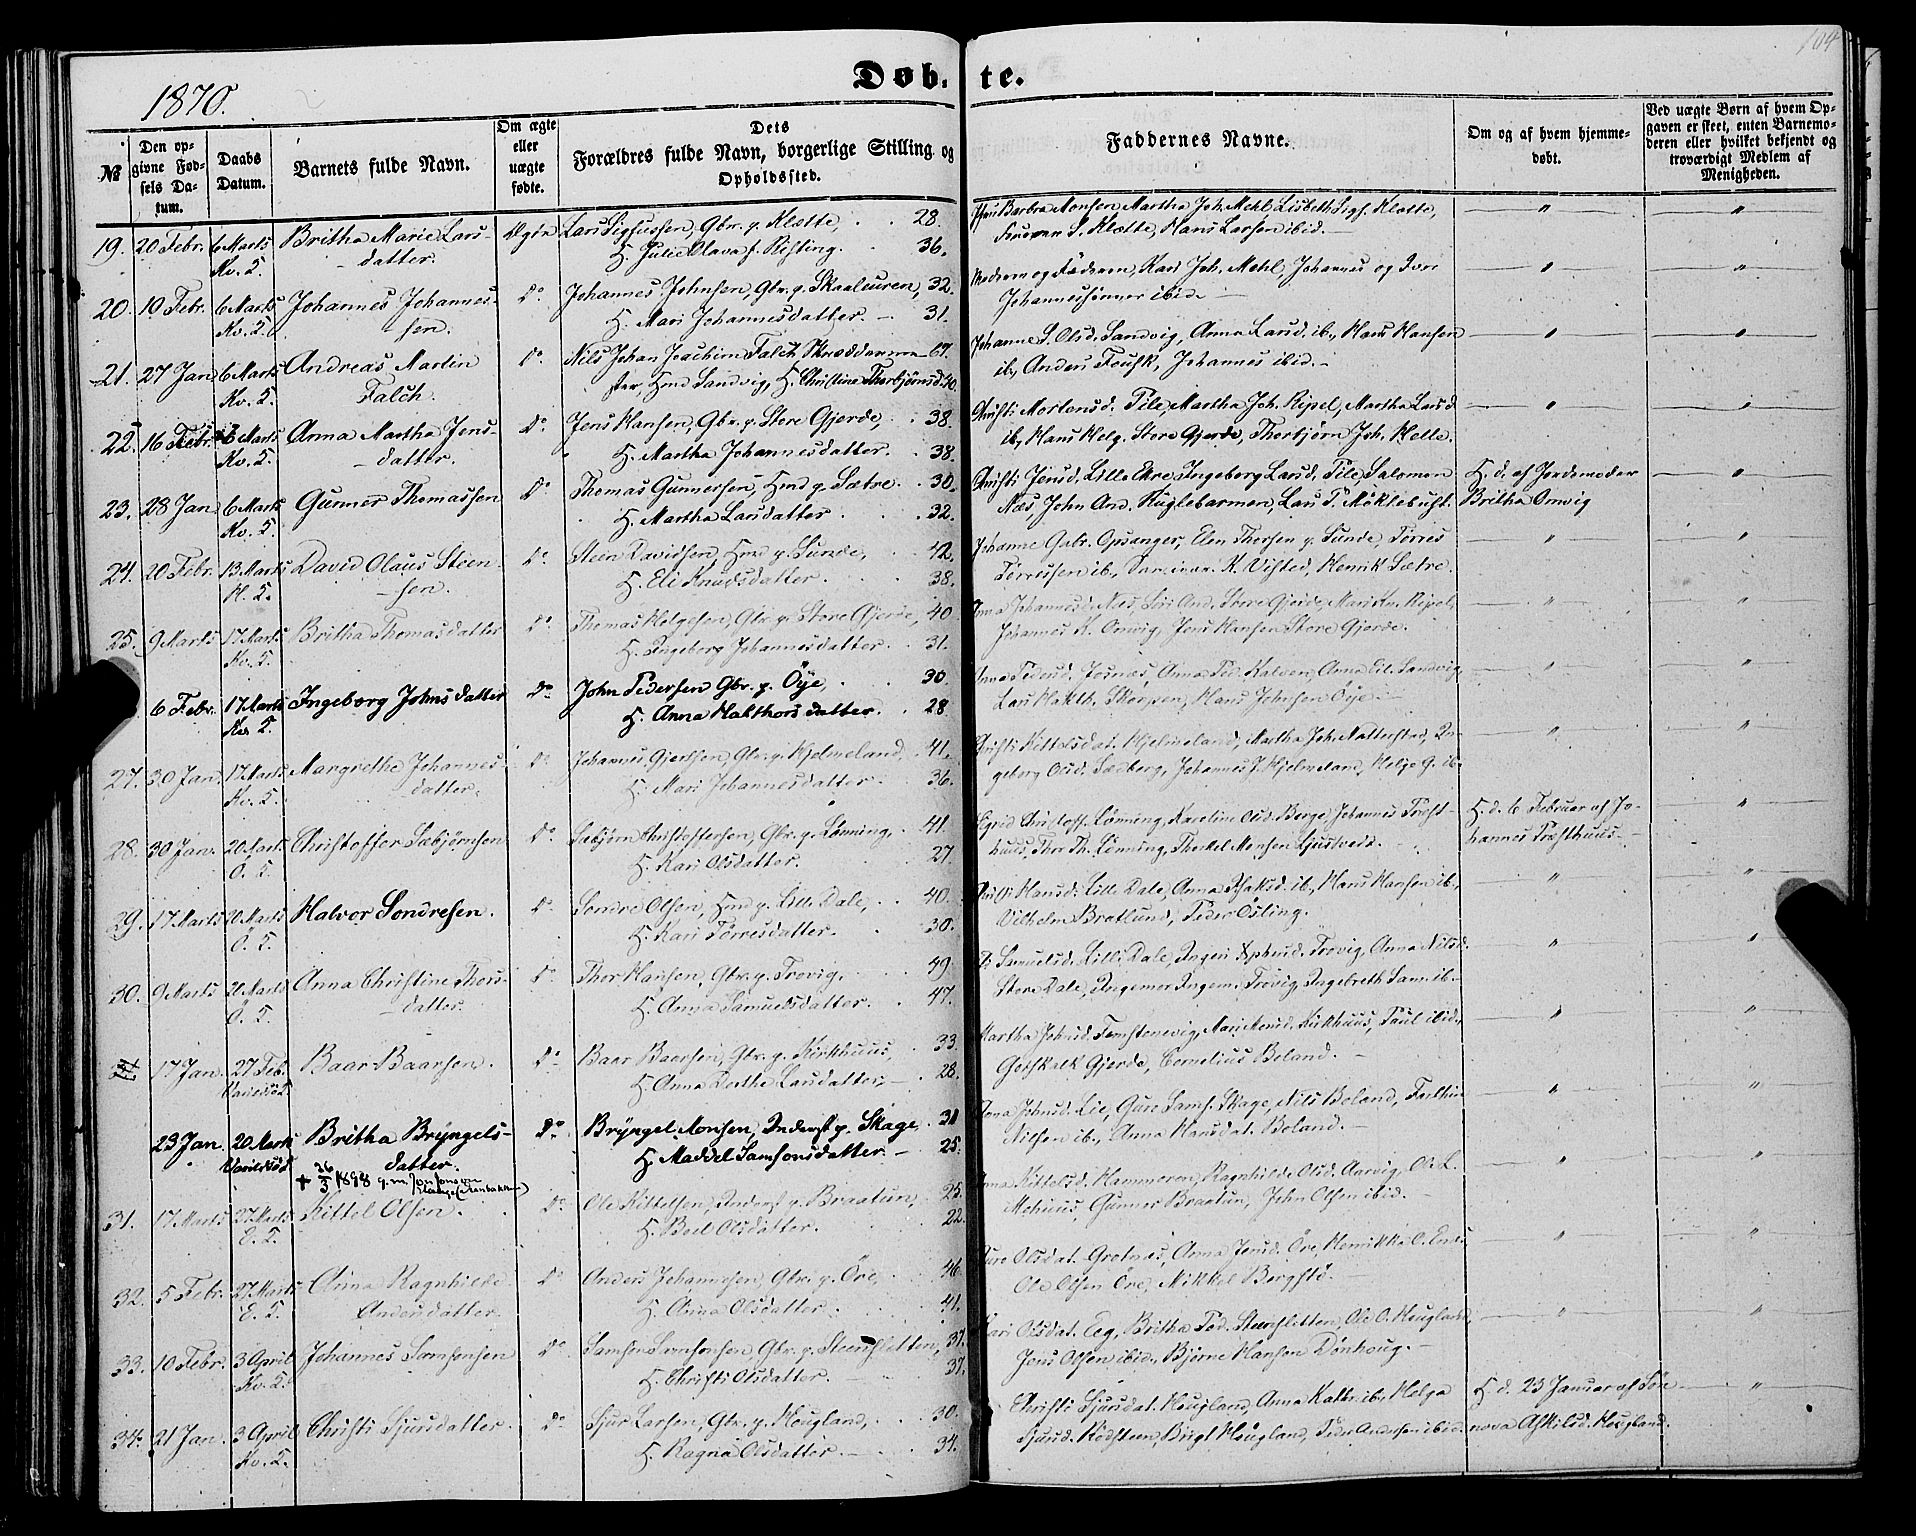 104
1870.
Døb- te.
№
Den opgivne Fødsels Datum.
Daabs Datum.
Barnets fulde Navn.
Om ægte eller uægte fødte.
Dets Forældres fulde Navn, borgerlige Stilling og Opholdssted.
Faddernes Navne.
Om og af hvem hjemmedøbt.
Ved uægte Børn af hvem Opgaven er skeet, enten Barnemoderen eller hvilket bekjendt og troværdigt Medlem af Menigheden.
19. 20 Febr. 6 Marts Britha Marie Lars- Ægte Lars Sigfussen, Gbr. p. Klette, 28.
Kv. S. datter. H. Julie Olava f. Risting. 36.
Barbra Monsen Martha Joh. Mehl, Lisbeth Sigf. Klette,
S. Klette, Hans Larsen ibid. — " "
20. 10 Febr. 6 Marts Johannes Johannes- Do Johannes Johnsen, Gbr. p. Skaaleuren, 32.
Kv. S. sen. H. Mari Johannesdatter. — 31.
Kari Joh. Mehl, Johannes og Iver
Johannessønner ibid. — " "
21. 27 Jan 6 Marts Andreas Martin Do Nils Johan Joachim Falch Skrædderme- 67.
Kv. S. Falch. ster, Hmd Sandvig, H. Christine Thorbjørnsd. 40.
Johanne S. Olsd. Sandvig, Anna Larsd. ib., Hans Hansen
ib., Anders Johannes ibid. — " "
22. 16 Febr. 6 Marts Anna Martha Jens- Do Jens Hansen, Gbr. p. Store Gjerde, 38.
Kv. S. datter. H. Martha Johannesdatter. 38.
Christi Mortensd. Martha Joh. Ripel, Martha Larsd
ib., Hans Helg. Store Gjerde, Thorbjørn Joh. " "
23. 28 Jan 6 Marts Gunner Thomassen Do Thomas Gunnersen, Hmd p. Sætre. 30.
Kv. S. H. Martha Larsdatter. 32.
Christi Jensd. Lille Ekre, Ingeborg Larsd. Salomon
Næs, John And. Huglebarmen, Lars P. Møklebust.
H. d. af Jordemoder
Britha Omvig "
24. 20 Febr. 13 Marts David Olaus Steen- Do Steen Davidsen, Hmd p. Sunde, 42.
H. S. sen. H. Eli Knudsdatter. 38.
Johanne Gabr. Opsanger, Elen Thorsen p. Sunde, Tørres
Tørressen ib., K. Visted, Henrik Sætre. " "
25. 9 Marts 17 Marts Britha Thomasdatter Do Thomas Helgesen, Gbr. p. Store Gjerde, 40
Kv. S. H. Ingeborg Johannesdatter. 31.
Anna Johannesd. Næs, And. Store Gjerde, Mari Kn. Ripel,
Johannes K. Omvig, Jens Hansen Store Gjerde. " "
6 Febr. 17 Marts Ingeborg Johnsdatter Do John Pedersen Gbr. p. Øye, 30.
Kv. S. H. Anna Halthorsdatter. 28.
Anna Pedersd. Anna Ped. Kalven, Anna Sandvig,
Lars Halth. Skorpen, Hans Johnsen Øye. " "
27. 30 Jan. 17 Marts Margrethe Johannes- Do Johannes Gjertsen, Gbr. p. Hjelmeland, 41.
Kv. S. datter. H. Mari Johannesdatter. 36.
Christi Kittelsdat. Hjelmeland, Martha Joh. Natterstad, In-
geborg Olsd. Johannes J. Hjelmeland, Helge G. ib. " "
28. 30 Jan. 20 Marts Christoffer Sæbjørnsen Do Sæbjørn Christoffersen, Gbr. p. Lønning, 41.
Ø. S. H. Kari Olsdatter. 27.
Christoff. Lønning, Karoline Olsd. Berge, Johannes Træft-
huus, Thor Th. Lønning, Thorkel Monsen
H. d. 6 Februar af Jo-
hannes Træfthuus. "
29. 17 Marts 20 Marts Halvor Sondresen. Do Sondre Olsen, Hmd p. Lille Dale, 40.
Ø. S. H. Kari Tørresdatter. 30.
Hansd. Lille Dale, Anna ib., Hans Hansen ib.,
Vilhelm Bratlund, Peder Østing. " "
30. 9 Marts 20 Marts Anna Christine Thors- Do Thor Hansen, Gbr. p. Trovig, 49
Ø. S. datter. H. Anna Samuelsdatter. 47.
Samuelsd. Lille Dale, Trovig, Anna Nilsd.
Store Dale, Trovig, Ingebreth Sam. ib. " "
17 Jan. 27 Feb. Baar Baarsen. Do Baar Baarsen, Gbr. p. Kirkhuus, 33.
Varaldsøe H. Anna Dorthe Larsdatter, 28.
Martha Johnsd. Kirkhuus, Paul ibid.,
Gotskalk Gjerde, Cornelius Boland. " "
23 Jan 20 Marts Britha Bryngels- Do Bryngel Monsen, Inderst p. Skage 31
Varaldsøe datter. H. Maddel Samsonsdatter 25.
+ 26/3 1898 g. m.
Anna Johnsd. Lie, Guro Sams. Skage, Nils Boland,
Nilsen ib., Anna Hansdat. Boland. " "
31. 17 Marts 27 Marts Kittel Olsen. Do Ole Kittelsen, Inderst p. Braatun, 25.
E. S. H. Boel Olsdatter. 22.
Kittelsd. Hammeren, Ragnhilde Olsd. Aarvig, Ole L.
Gunner Braatun, John Olsen ibid. " "
32. 5 Febr. 27 Marts Anna Ragnhilde Do Anders Johannesen, Gbr. p. Øre, 46.
E. S. Andersdatter. H. Anna Olsdatter. 41.
Guro Olsdat. Grotnæs, Anna Jensd. Øre, Henrikka O. Enæs
Ole Olsen Øre, Mikkel Bergstø. " "
33. 10 Febr. 3 April Johannes Samsonsen Do Samson Samsonsen, Gbr. p. Steensletten, 37.
Kv. S. H. Christi Olsdatter. 37.
Kari Olsdat. Eeg, Britha Ped. Steensletten, Ole O. Hougland,
Jens Olsen ibid., Bjørne Hansen Dønhoug. " "
34. 21 Jan. 3 April Christi Sjursdatter. Do Sjur Larsen, Gbr. p. Hougland, 30.
Kv. S. H. Ragna Olsdatter. 34.
Christi Sjursdat. Hougland, Anna Kathr. ib., Helga
Sjursd. Rødsteen, Birgt Hougland, Peder Andersen ibid.
H. d. 23 Januar af Søn-
nova Askilsd. Hougland. "